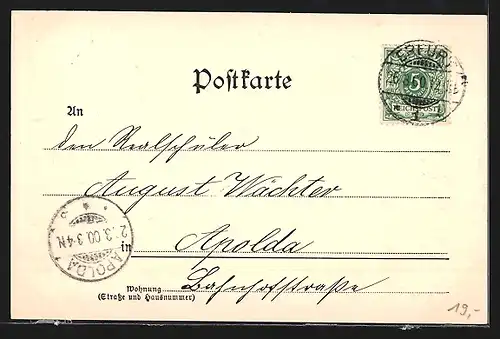 ERFURT
5
REICHSPOST
1
Postkarte
An
den Realschüler
August Wächter
in Apolda
APOLDA
2.3.00.3-4N
Wohnung
(Straße und Hausnummer)
Bahnhofstraße
19,-